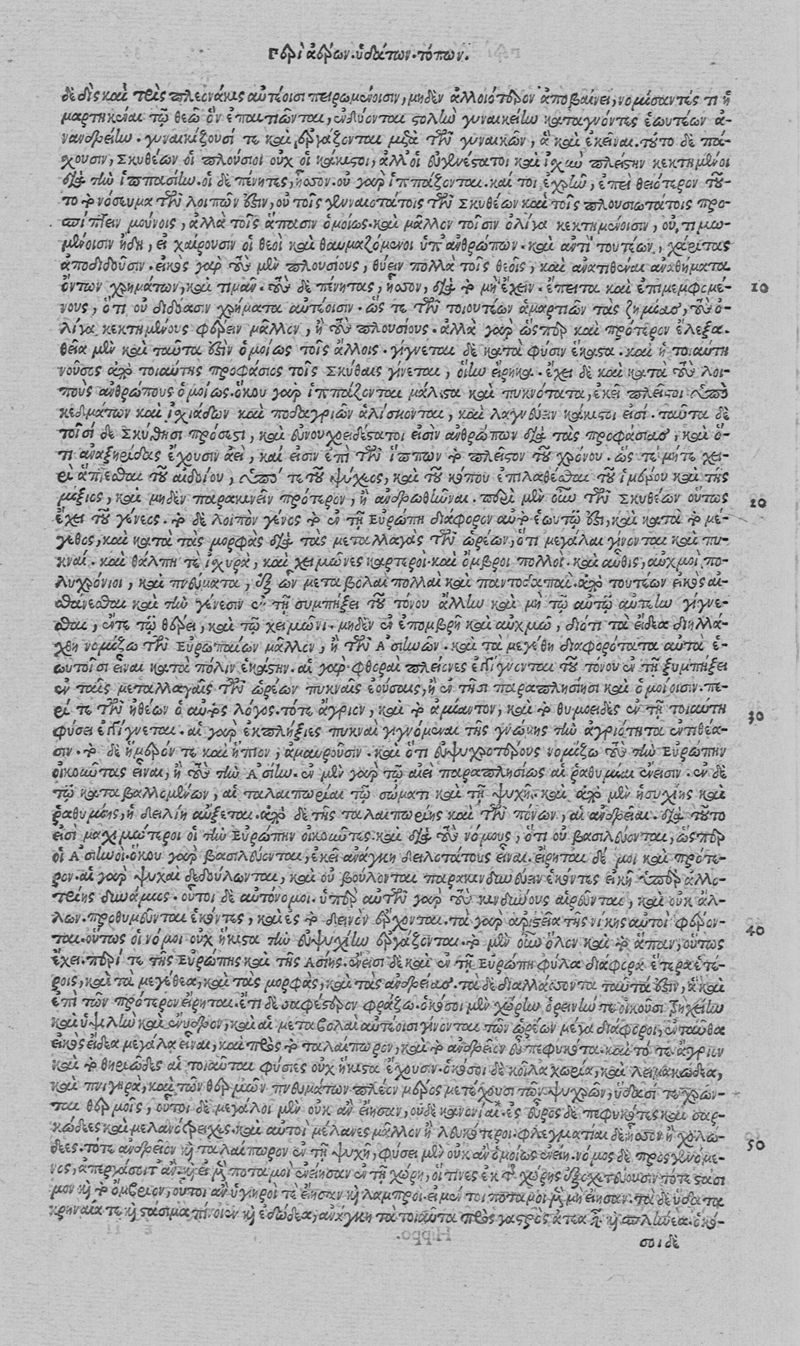 Περὶ ἀέρων. ὑδάτων. τόπων.
δὲ δὶς καὶ τρὶς πλεονάκις αὐτέοισι πειρωμένοισιν, μηδὲν ἀλλοιότερον ἀποβαίνει, νομίσαντές τι ἡ-
μαρτηκέναι τῷ θεῷ ὃν ἐπαιτιῶνται, ἐνδύονται στολὴν γυναικείην καταγνόντες ἑωυτέων ἀ-
νανδρείην. γυναικίζουσί τε καὶ ἐργάζονται μετὰ τῶν γυναικῶν, ἃ καὶ ἐκεῖναι. τοῦτο δὲ πά-
σχουσιν, Σκυθέων οἱ πλούσιοι οὐχ οἱ κάκιστοι, ἀλλ' οἱ εὐγενέστατοι καὶ ἰσχὺν πλείστην κεκτημένοι
διὰ τὴν ἱππασίην. οἱ δὲ πένητες, ἧσσον. οὐ γὰρ ἱππάζονται. καίτοι ἐχρῆν, ἐπεὶ θειότερον τοῦ-
το τὸ νόσευμα τῶν λοιπῶν ἐστιν, οὐ τοῖς γενναιοτάτοις τῶν Σκυθέων καὶ τοῖς πλουσιωτάτοις προ-
σπίπτειν μούνοις, ἀλλὰ τοῖς ἅπασιν ὁμοίως. καὶ μᾶλλον τοῖσιν ὀλίγα κεκτημένοισιν, οὐ τιμω-
μένοισιν ἤδη, εἰ χαίρουσιν οἱ θεοὶ καὶ θαυμαζόμενοι ὑπ' ἀνθρώπων. καὶ ἀντὶ τουτέων, χάριτας
ἀποδιδοῦσιν. εἰκὸς γὰρ τοὺς μὲν πλουσίους, θύειν πολλὰ τοῖς θεοῖς, καὶ ἀνατιθέναι ἀναθήματα
ὄντων χρημάτων, καὶ τιμᾶν. τοὺς δὲ πένητας, ἧσσον, διὰ τὸ μὴ ἔχειν. ἔπειτα καὶ ἐπιμεμφομέ- 10
νους, ὅτι οὐ διδόασιν χρήματα αὐτέοισιν. ὥς τε τῶν τοιουτέων ἁμαρτιῶν τὰς ζημίας, τοὺς ὀ-
λίγα κεκτημένους φέρειν μᾶλλον, ἢ τοὺς πλουσίους. ἀλλὰ γὰρ ὥσπερ καὶ πρότερον ἔλεξα.
θεῖα μὲν καὶ ταῦτά ἐστιν ὁμοίως τοῖς ἄλλοις. γίγνεται δὲ κατὰ φύσιν ἕκαστα. καὶ ἡ τοιαύτη
νοῦσος ἀπὸ τοιαύτης προφάσιος τοῖς Σκύθαις γίνεται, οἵην εἴρηκα. ἔχει δὲ καὶ κατὰ τοὺς λοι-
ποὺς ἀνθρώπους ὁμοίως. ὅκου γὰρ ἱππάζονται μάλιστα καὶ πυκνότατα, ἐκεῖ πλεῖστοι ὑπὸ
κεδμάτων καὶ ἰσχιάδων καὶ ποδαγριῶν ἁλίσκονται, καὶ λαγνεύειν κάκιστοί εἰσι. ταῦτα δὲ
τοῖσί δε Σκύθῃσι πρόσεστι, καὶ εὐνουχοειδέστατοί εἰσιν ἀνθρώπων διὰ τὰς προφάσιας, καὶ ὅ-
τι ἀναξηρίδας ἔχουσιν ἀεὶ, καὶ εἰσὶν ἐπὶ τῶν ἵππων τὸ πλεῖστον τοῦ χρόνου. ὥς τε μήτε χει-
ρὶ ἅπτεσθαι τοῦ αἰδοίου, ὑπό τε τοῦ ψύχεος, καὶ τοῦ κόπου ἐπιλαθέσθαι τοῦ ἱμέρου καὶ τῆς
μίξιος, καὶ μηδὲν παρακινεῖν πρότερον, ἢ ἀνδρωθῆναι. περὶ μὲν οὖν τῶν Σκυθέων οὕτως 20
ἔχει τοῦ γένεος. τὸ δὲ λοιπὸν γένος τὸ ἐν τῇ Εὐρώπῃ διάφορον αὐτὸ ἑωυτῷ ἐστι, καὶ κατὰ τὸ μέ-
γεθος, καὶ κατὰ τὰς μορφὰς διὰ τὰς μεταλλαγὰς τῶν ὡρέων, ὅτι μεγάλαι γίνονται καὶ πυ-
κναί. καὶ θάλπη τε ἰσχυρὰ, καὶ χειμῶνες καρτεροὶ. καὶ ὄμβροι πολλοί. καὶ αὖθις, αὐχμοὶ πο-
λυχρόνιοι, καὶ πνεύματα, ἐξ ὧν μεταβολαὶ πολλαὶ καὶ παντοδαπαί. ἀπὸ τουτέων εἰκὸς αἰ-
σθάνεσθαι καὶ τὴν γένεσιν ἐν τῇ συμπήξει τοῦ τόνου ἄλλην καὶ μὴ τῷ αὐτῷ αὐτέην γίγνε-
σθαι, ἔν τε τῷ θέρει, καὶ τῷ χειμῶνι. μηδὲν ἐν ἐπομβρῇ καὶ αὐχμῷ, διότι τὰ εἴδεα διηλλά-
χθη νομίζω τῶν Εὐρωπαίων μᾶλλον, ἢ τῶν Ἀσιηνῶν. καὶ τὰ μεγέθη διαφορότατα αὐτὰ ἑ-
ωυτοῖσι εἶναι κατὰ πόλιν ἑκάστην. αἱ γὰρ φθοραὶ πλείονες ἐπιγίνονται τοῦ τόνου ἐν τῇ ξυμπήξει
ἐν ταῖς μεταλλαγαῖς τῶν ὡρέων πυκναῖς ἐούσαις, ἢ ἐν τῇσι παραπλησίῃσι καὶ ὁμοίοισιν. πε-
ρί τε τῶν ἠθέων ὁ αὐτὸς λόγος. τότε ἄγριον, καὶ τὸ ἀμίαντον, καὶ τὸ θυμοειδὲς ἐν τῇ τοιαύτῃ 30
φύσει ἐπιγίνεται. αἱ γὰρ ἐκπλήξιες πυκναὶ γιγνόμεναι τῆς γνώμης τὴν ἀγριότητα ἐντιθέα-
σιν. τὸ δὲ ἥμερόν τε καὶ ἤπιον, ἀμαυροῦσιν. καὶ ὅτι εὐψυχοτέρους νομίζω τοὺς τὴν Εὐρώπην
οἰκέοντας εἶναι, ἢ τοὺς τὴν Ἀσίην. ἐν μὲν γὰρ τῷ αἰεὶ παραπλησίως αἱ ῥαθυμίαι ἔνεισιν. ἐν δὲ
τῷ μεταβαλλομένῳ, αἱ ταλαιπωρίαι τῷ σώματι καὶ τῇ ψυχῇ. καὶ ἀπὸ μὲν ἡσυχίης καὶ
ῥαθυμίης, ἡ δειλίη αὔξεται. ἀπὸ δὲ τῆς ταλαιπωρίης καὶ τῶν πόνων, αἱ ἀνδρεῖαι. διὰ τοῦτο
εἰσὶ μαχιμώτεροι οἱ τὴν Εὐρώπην οἰκέοντες. καὶ διὰ τοὺς νόμους, ὅτι οὐ βασιλεύονται, ὥσπερ
οἱ Ἀσιηνοί. ὅκου γὰρ βασιλεύονται, ἐκεῖ ἀνάγκη δειλοτάτους εἶναι. εἴρηται δέ μοι καὶ πρότε-
ρον. αἱ γὰρ ψυχαὶ δεδούλωνται, καὶ οὐ βούλονται παρακινδυνεύειν ἑκόντες εἰκῇ ὑπὲρ ἀλλο-
τρίης δυνάμιος. οὗτοι δὲ αὐτόνομοι. ὑπὲρ αὐτῶν γὰρ τοὺς κινδύνους αἱρεῦνται, καὶ οὐκ ἄλ-
λων. προθυμεῦνται ἑκόντες, καὶ ἐς τὸ δεινὸν ἔρχονται. τὰ γὰρ ἀριστεῖα τῆς νίκης αὐτοὶ φέρον- 40
ται. οὕτως οἱ νόμοι οὐχ ἥκιστα τὴν εὐψυχίην ἐργάζονται. τὸ μὲν οὖν ὅλον καὶ τὸ ἅπαν, οὕτως
ἔχει. περί τε τῆς Εὐρώπης καὶ τῆς Ἀσίης. ἔνεισι δὲ καὶ ἐν τῇ Εὐρώπῃ φῦλα διάφορα ἕτερα ἑτέ-
ροις, καὶ τὰ μεγέθεα, καὶ τὰς μορφὰς, καὶ τὰς ἀνδρείας. τὰ δὲ διαλλάσσοντα ταὐτά ἐστιν, ἃ καὶ
ἐπὶ τῶν πρότερον εἴρηται. ἔτι δὲ σαφέστερον φράσω. ὁκόσοι μὲν χώρην ὀρεινήν τε οἰκοῦσι ξηχείην
καὶ ὑψηλὴν καὶ ἔνυδρον, καὶ αἱ μεταβολαὶ αὐτέοισι γίνονται τῶν ὡρέων μέγα διάφοροι, ἐνταῦθα
εἰκὸς εἴδεα μεγάλα εἶναι, καὶ πρὸς τὸ ταλαίπωρον, καὶ τὸ ἀνδρεῖον εὖ πεφυκότα. καὶ τό τε ἄγριον
καὶ τὸ θηριῶδες αἱ τοιαῦται φύσιες οὐχ ἥκιστα ἔχουσιν. ὁκόσοι δὲ κοῖλα χωρία, καὶ λειμακώδεα,
καὶ πνιγηρὰ, καὶ τῶν θερμῶν πνευμάτων πλέον μέρος μετέχουσι τῶν ψυχρῶν, ὕδασί τε χρῶν-
ται θερμοῖς, οὗτοι δὲ μεγάλοι μὲν οὐκ ἂν εἴησαν, οὐδὲ κανονίαι. ἐς εὖρος δὲ πεφυκότες καὶ σαρ-
κώδεες καὶ μελανότριχες. καὶ αὐτοὶ μέλανες μᾶλλον ἢ λευκότεροι. φλεγματίαι δὲ ἧσσον ἢ χολώ- 50
δεες. τότε ἀνδρεῖον καὶ ταλαίπωρον ἐν τῇ ψυχῇ, φύσει μὲν οὐκ ἂν ὁμοίως ἐνείη. νόμος δὲ προσγενόμε-
νος, ἀπεργάσοιτ' ἂν. καὶ εἰ μὲν ποταμοὶ ἐνείησαν ἐν τῇ χώρῃ, οἵτινες ἐκ τῆς χώρης ἐξοχετεύουσιν τότε στάσι
μον καὶ τὸ ὄμβριον, οὗτοι ἂν ὑγιηροί τε εἴησαν καὶ λαμπροί. εἰ μέντοι ποταμοὶ μὲν μὴ εἴησαν. τὰ δὲ ὕδατα
κρηναῖά τε καὶ στάσιμα πίνοιεν καὶ ἑλώδεα, ἀνάγκη τὰ τοιαῦτα πρὸς γαστρὸς ἄτεα καὶ σπληνεα. ὁκό-
σοι δὲ